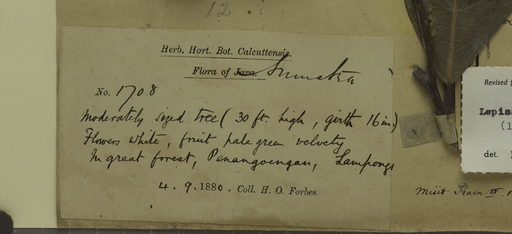 12.
Herb. Hort. Bot. Calcuttensis.
Flora of Java. Sumatra
No. 1708
Moderately sized tree (30 ft. high, girth 16 in)
Flowers white, fruit pale green velvety
In great forest, Penangoengan, Lampongs
4.9.1880. Coll. H. O. Forbes.
Revised
Lepis
(1
det.